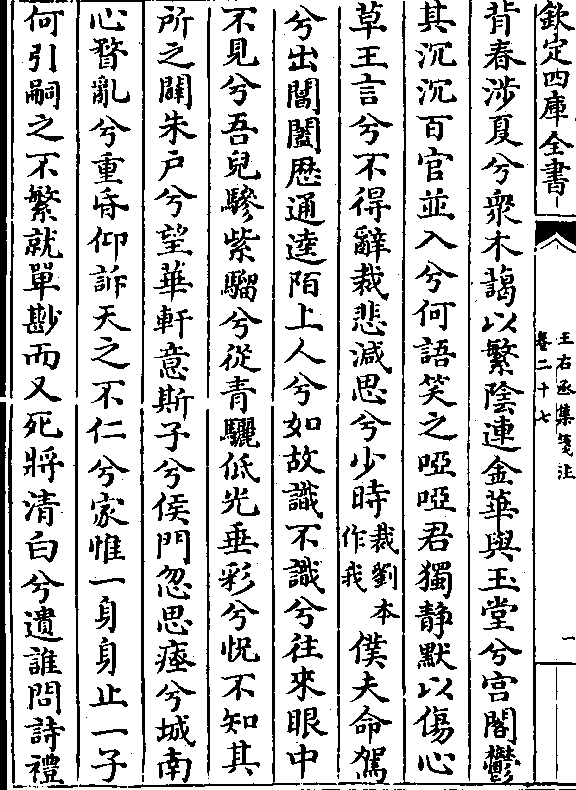 欽定四庫全書
王右丞集箋注
卷二十七
一
背春涉夏兮衆木藹以繁陰連金華與玉堂兮宫閣鬱
其沉沉百官並入兮何語笑之啞啞君獨静默以傷心
草王言兮不得辭裁悲減思兮少時裁劉本作我僕夫命駕
兮出閶闔歴通逵陌上人兮如故識不識兮往來眼中
不見兮吾兒驂紫騮兮從青驪低光垂彩兮怳不知其
所之闢朱户兮望華軒意斯子兮俟門忽思瘞兮城南
心瞀亂兮重昏仰訴天之不仁兮家惟一身身止一子
何引嗣之不繁就單尠而又死將清白兮遺誰問詩禮